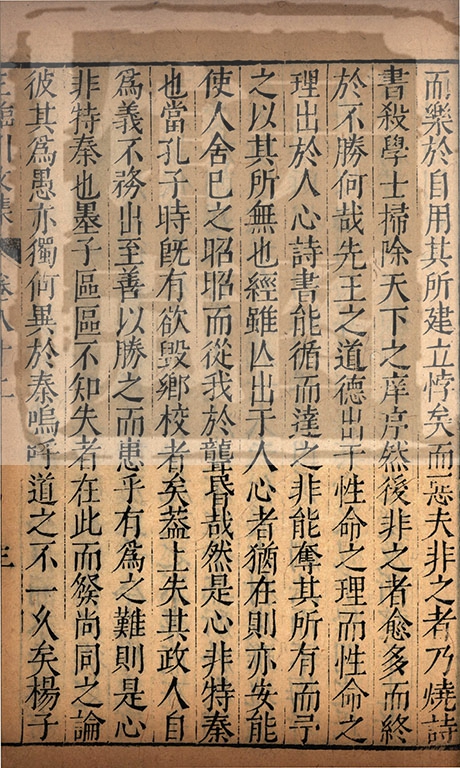 而樂於自用其所建立悖矣而惡夫非之者乃燒詩
書殺學士掃除天下之庠序然後非之者愈多而終
於不勝何哉先王之道德出于性命之理而性命之
理出於人心詩書能循而達之非能奪其所有而予
之以其所無也經雖亾出于人心者猶在則亦安能
使人舍巳之昭昭而從我於聾昏哉然是心非特秦
也當孔子時旣有欲毀鄉校者矣葢上失其政人自
爲義不務出至善以勝之而患乎有爲之難則是心
非特秦也墨子區區不知失者在此而發尚同之論
彼其爲愚亦獨何異於秦嗚呼道之不一久矣楊子
王臨川文集 卷八十二 三